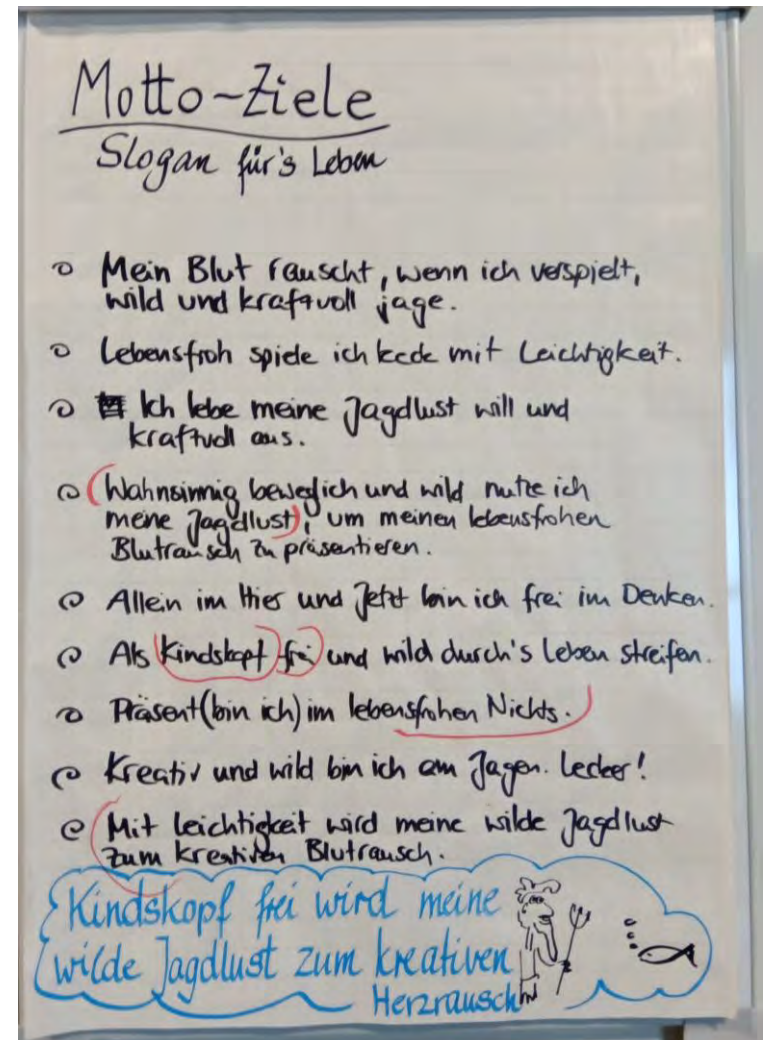 Motto-Ziele
Slogan für's Leben
Mein Blut rauscht, wenn ich verspielt,
wild und kraftvoll jage.
Lebensfroh spiele ich kede mit Leichtigkeit.
Ich lebe meine Jagdlust will und
kraftvoll aus.
(Wahnsinnig beweglich und wild nutze ich
meine Jagdlust), um meinen lebensfrohen
Blutrausch zu präsentieren.
Allein im Hier und Jetzt bin ich frei im Denken.
Als (Kindskopf) (frei) und wild durch's Leben streifen.
Präsent (bin ich) im lebensfrohen Nichts.
Kreativ und wild bin ich am Jagen. Lecker!
(Mit Leichtigkeit wird meine wilde Jagdlust
zum kreativen Blutrausch.
Kindskopf frei wird meine
wilde Jagdlust zum kreativen
Herzrausch